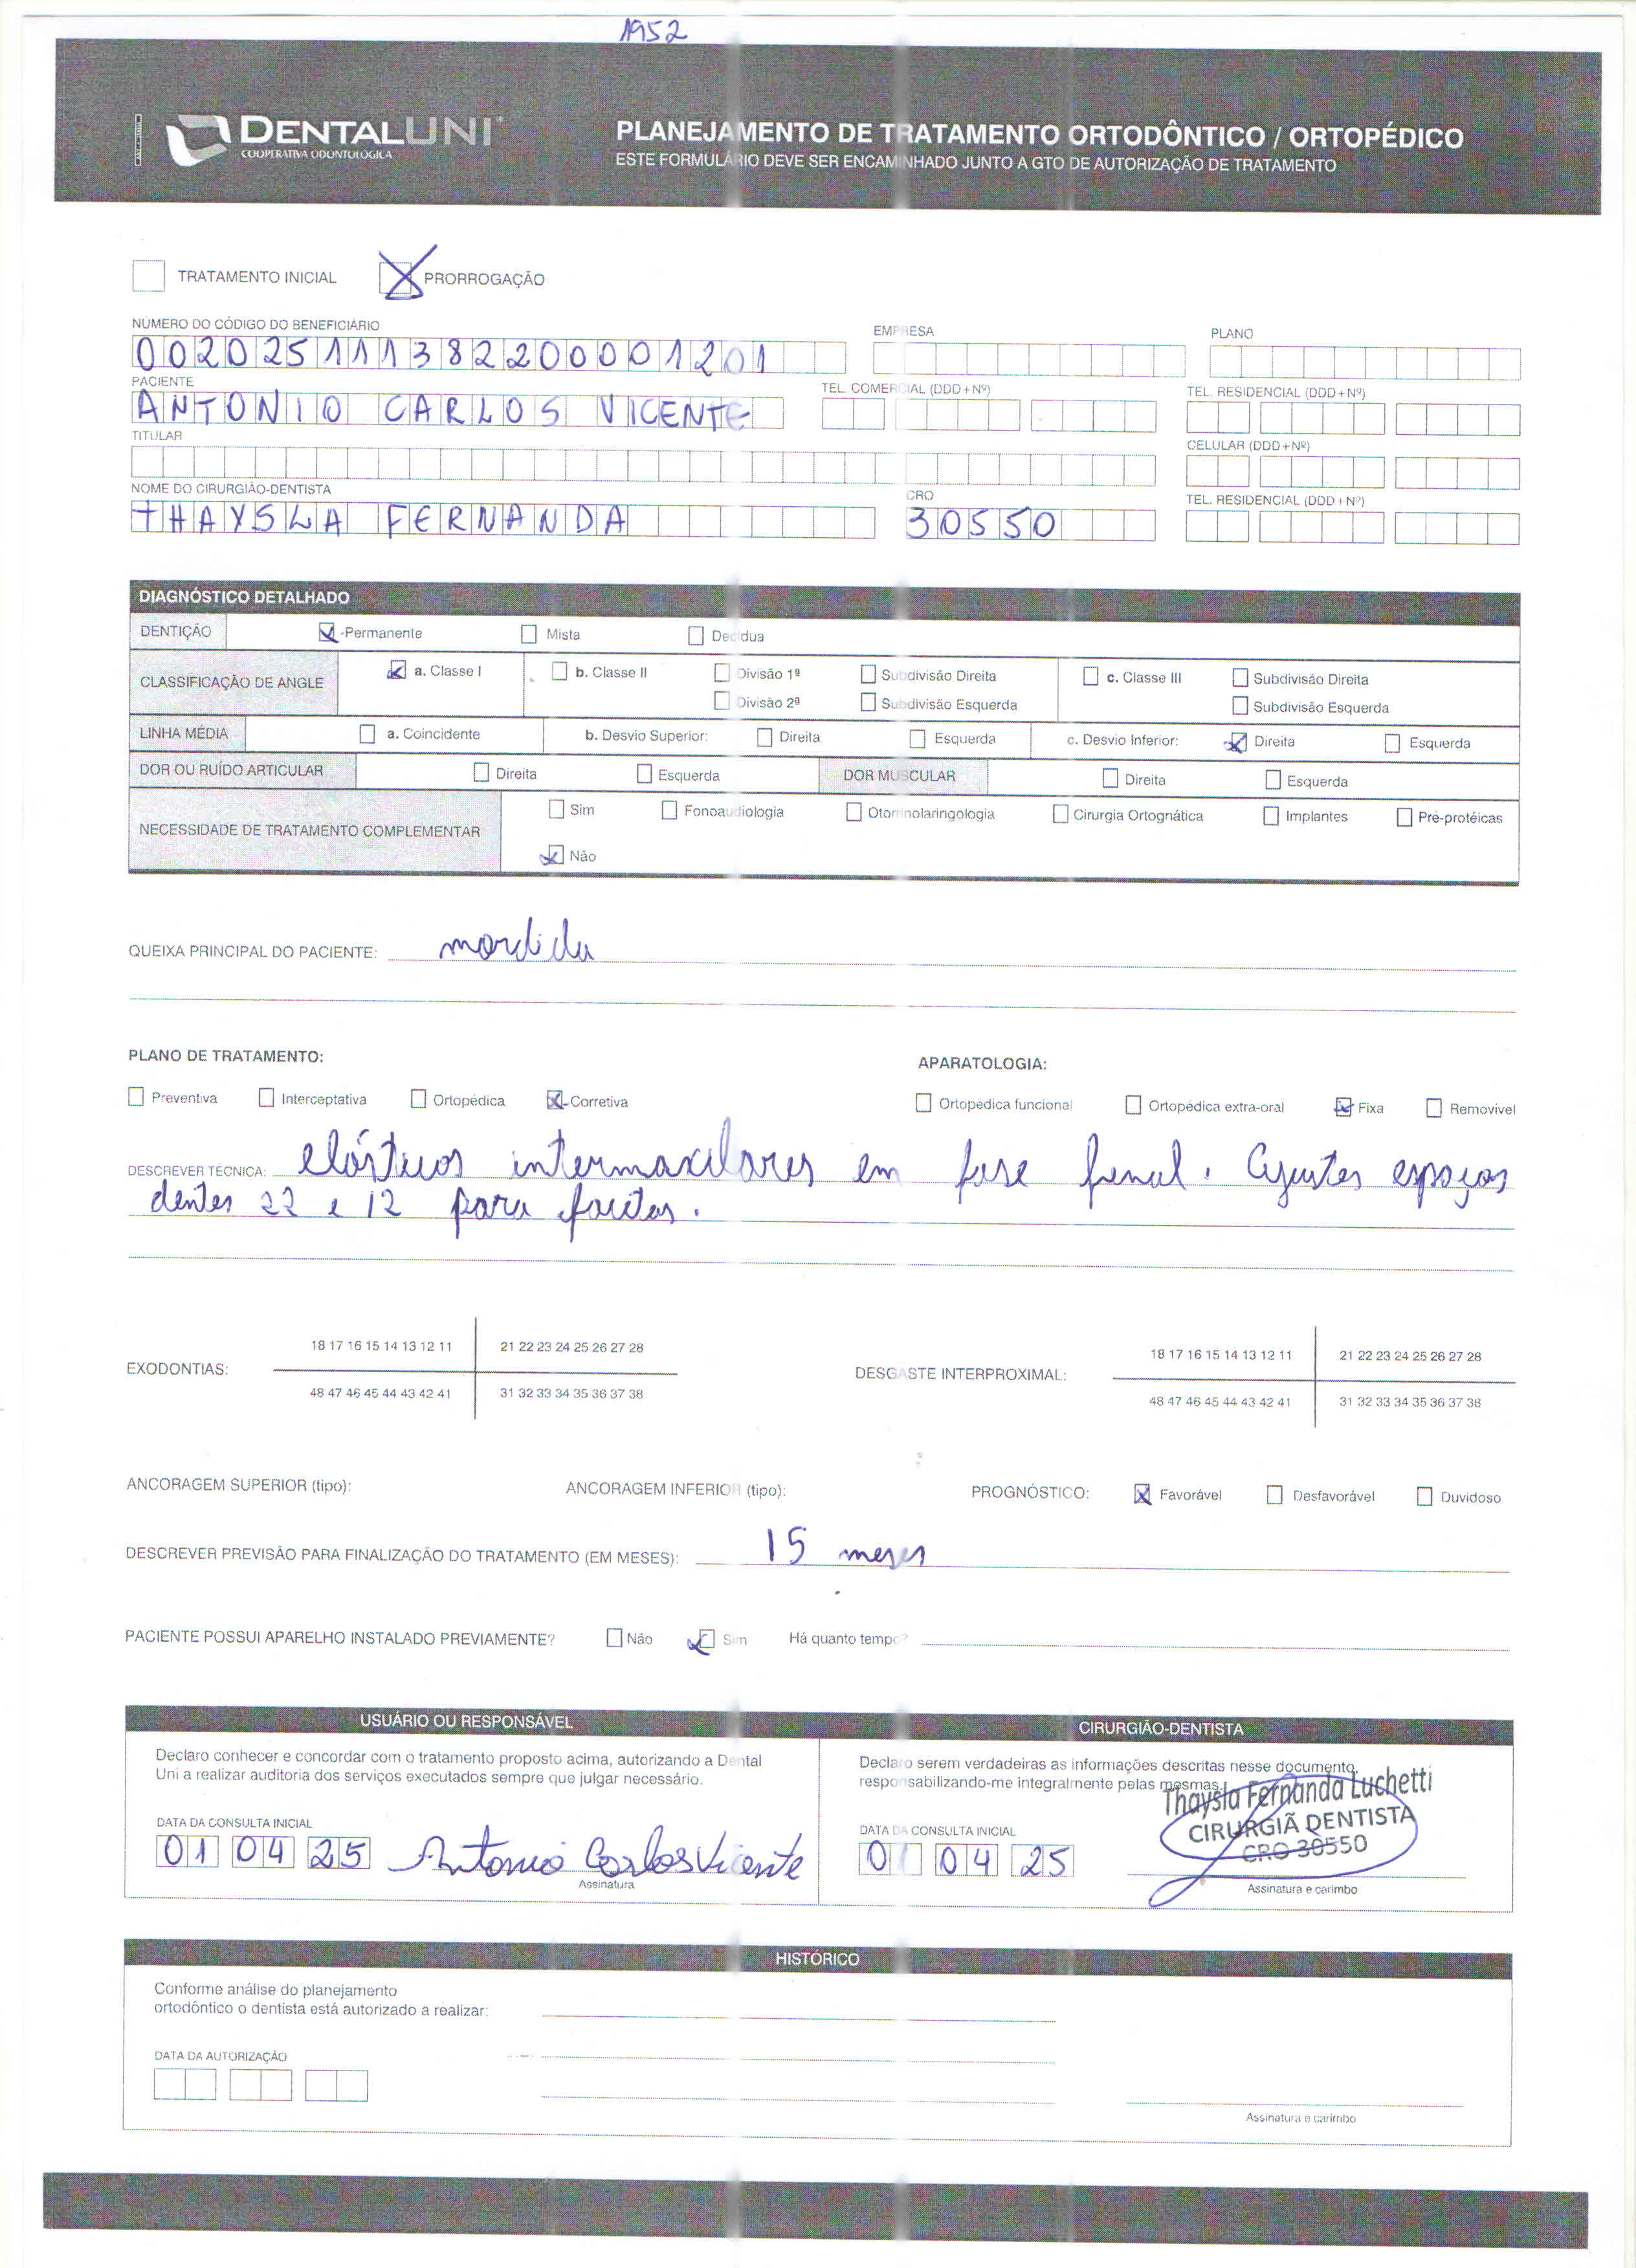 1952
DENTALUNI
COOPERATIVA ODONTOLÓGICA
PLANEJAMENTO DE TRATAMENTO ORTODÔNTICO / ORTOPÉDICO
ESTE FORMULÁRIO DEVE SER ENCAMINHADO JUNTO A GTO DE AUTORIZAÇÃO DE TRATAMENTO
TRATAMENTO INICIAL PRORROGAÇÃO
NÚMERO DO CÓDIGO DO BENEFICIÁRIO EMPRESA PLANO
002025111382200001201
PACIENTE TEL. COMERCIAL (DDD+Nº) TEL. RESIDENCIAL (DDD+Nº)
ANTONIO CARLOS VICENTE
TITULAR CELULAR (DDD+Nº)
NOME DO CIRURGIÃO-DENTISTA CRO TEL. RESIDENCIAL (DDD+Nº)
THAYSLA FERNANDA 30550
DIAGNÓSTICO DETALHADO
DENTIÇÃO Permanente Mista Decídua
CLASSIFICAÇÃO DE ANGLE a. Classe I b. Classe II Divisão 1ª Subdivisão Direita c. Classe III Subdivisão Direita
Divisão 2ª Subdivisão Esquerda Subdivisão Esquerda
LINHA MÉDIA a. Coincidente b. Desvio Superior: Direita Esquerda c. Desvio Inferior: Direita Esquerda
DOR OU RUÍDO ARTICULAR Direita Esquerda DOR MUSCULAR Direita Esquerda
NECESSIDADE DE TRATAMENTO COMPLEMENTAR Sim Fonoaudiologia Otorrinolaringologia Cirurgia Ortognática Implantes Pré-protéicas
Não
QUEIXA PRINCIPAL DO PACIENTE: mordida
PLANO DE TRATAMENTO: APARATOLOGIA:
Preventiva Interceptativa Ortopédica Corretiva Ortopédica funcional Ortopédica extra-oral Fixa Removível
DESCREVER TÉCNICA: elásticos intermaxilares em fase final. Ajustes espaços
dentes 22 e 12 para facetas.
18 17 16 15 14 13 12 11 21 22 23 24 25 26 27 28 18 17 16 15 14 13 12 11 21 22 23 24 25 26 27 28
EXODONTIAS: DESGASTE INTERPROXIMAL:
48 47 46 45 44 43 42 41 31 32 33 34 35 36 37 38 48 47 46 45 44 43 42 41 31 32 33 34 35 36 37 38
ANCORAGEM SUPERIOR (tipo): ANCORAGEM INFERIOR (tipo): PROGNÓSTICO: Favorável Desfavorável Duvidoso
DESCREVER PREVISÃO PARA FINALIZAÇÃO DO TRATAMENTO (EM MESES): 15 meses
PACIENTE POSSUI APARELHO INSTALADO PREVIAMENTE? Não Sim Há quanto tempo?
USUÁRIO OU RESPONSÁVEL CIRURGIÃO-DENTISTA
Declaro conhecer e concordar com o tratamento proposto acima, autorizando a Dental
Uni a realizar auditoria dos serviços executados sempre que julgar necessário.
Declaro serem verdadeiras as informações descritas nesse documento,
responsabilizando-me integralmente pelas mesmas.
Thaysla Fernanda Luchetti
CIRURGIÃ DENTISTA
CRO 30550
DATA DA CONSULTA INICIAL DATA DA CONSULTA INICIAL
01 04 25 Antonio Carlos Vicente 0 04 25
Assinatura Assinatura e carimbo
HISTÓRICO
Conforme análise do planejamento
ortodôntico o dentista está autorizado a realizar:
DATA DA AUTORIZAÇÃO
Assinatura e carimbo